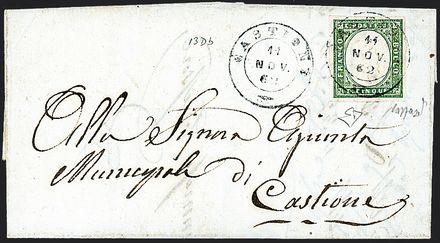 13Db
11
NOV.
62
11
NOV.
62
FRANCO
C. POSTE
BOLLO
C. CINQUE
Alla Signora Giunta
Municipale di
Castione